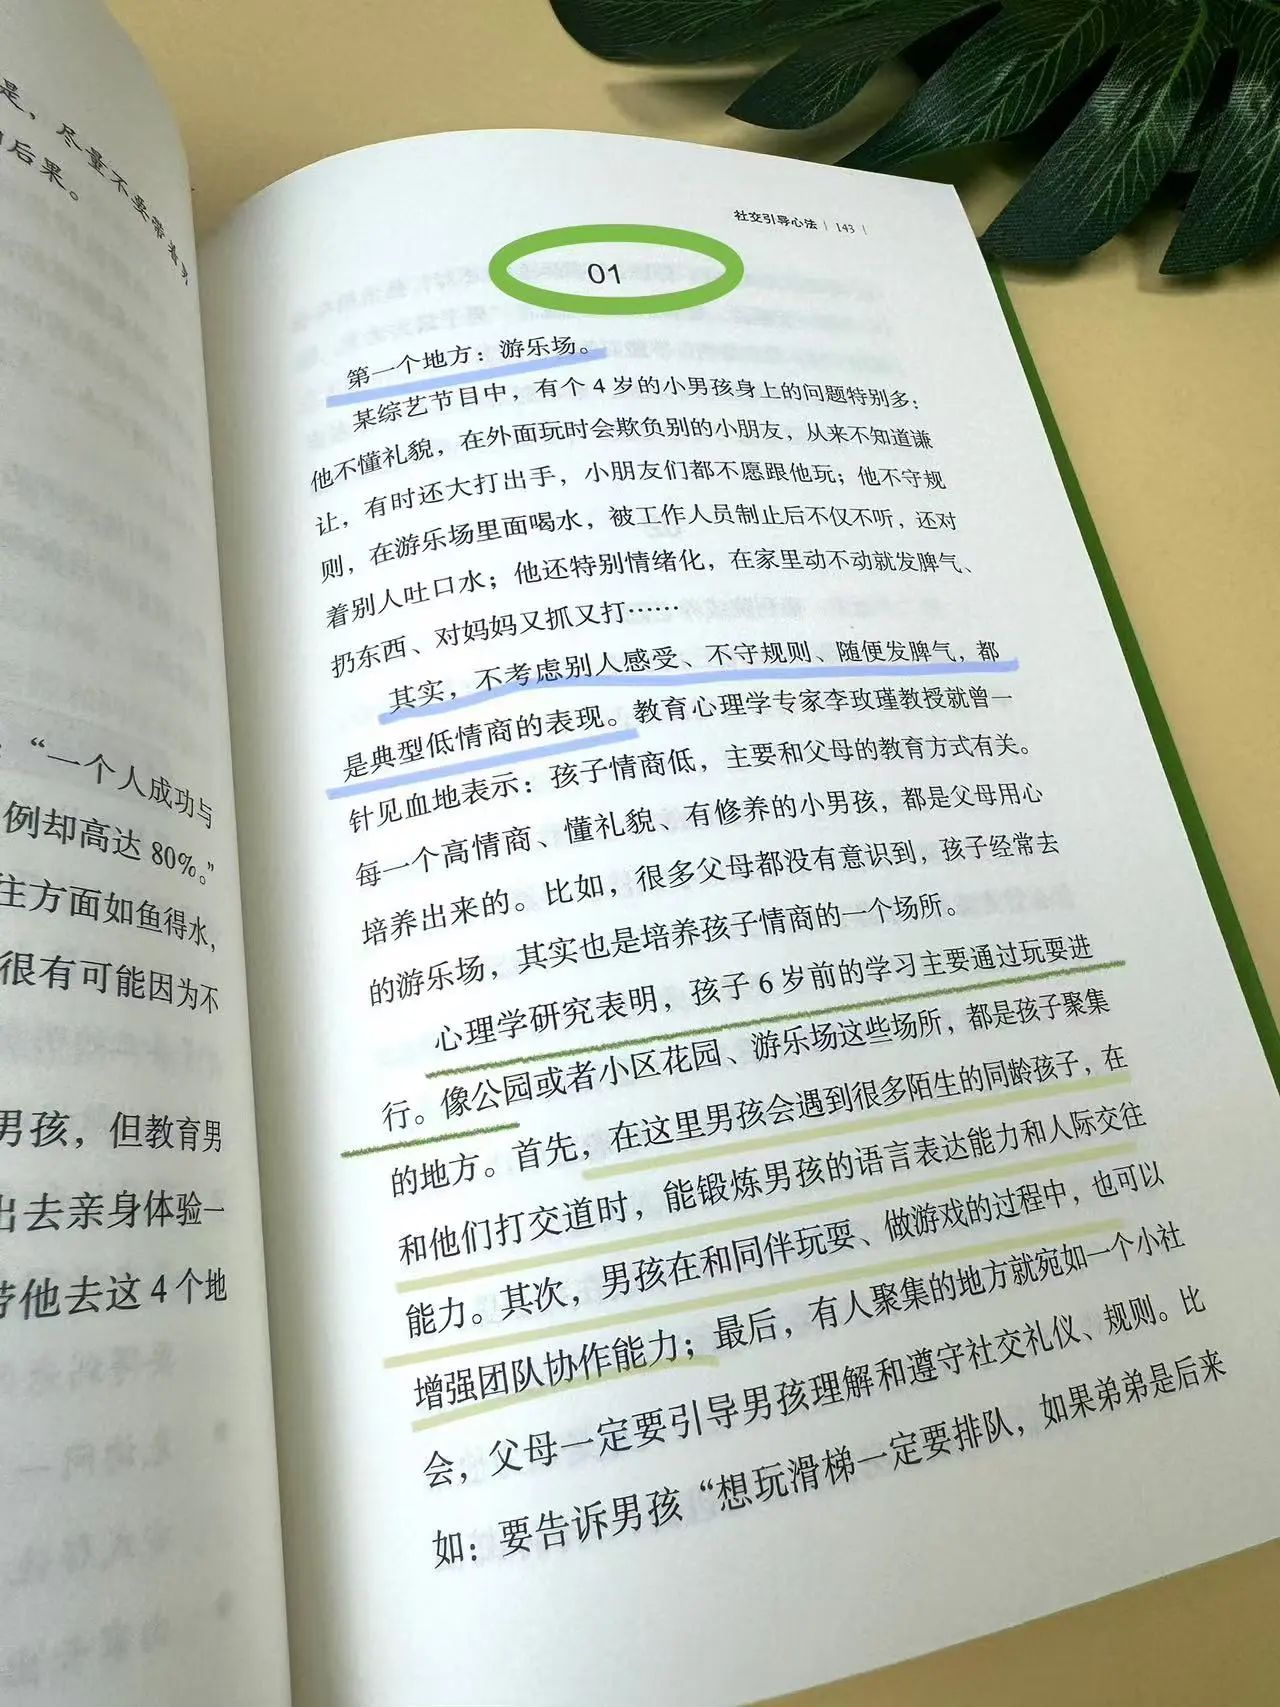 是，尽量不要带着男
后果。
“一个人成功与
例却高达 80%。”
往方面如鱼得水，
很有可能因为不
男孩，但教育男
出去亲身体验一
带他去这 4 个地
社交引导心法 | 143 |
01
第一个地方：游乐场。
某综艺节目中，有个 4 岁的小男孩身上的问题特别多：
他不懂礼貌，在外面玩时会欺负别的小朋友，从来不知道谦
让，有时还大打出手，小朋友们都不愿跟他玩；他不守规
则，在游乐场里面喝水，被工作人员制止后不仅不听，还对
着别人吐口水；他还特别情绪化，在家里动不动就发脾气、
扔东西、对妈妈又抓又打……
其实，不考虑别人感受、不守规则、随便发脾气，都
是典型低情商的表现。教育心理学专家李玫瑾教授就曾一
针见血地表示：孩子情商低，主要和父母的教育方式有关。
每一个高情商、懂礼貌、有修养的小男孩，都是父母用心
培养出来的。比如，很多父母都没有意识到，孩子经常去
的游乐场，其实也是培养孩子情商的一个场所。
心理学研究表明，孩子 6 岁前的学习主要通过玩耍进
行。像公园或者小区花园、游乐场这些场所，都是孩子聚集
的地方。首先，在这里男孩会遇到很多陌生的同龄孩子，在
和他们打交道时，能锻炼男孩的语言表达能力和人际交往
能力。其次，男孩在和同伴玩耍、做游戏的过程中，也可以
增强团队协作能力；最后，有人聚集的地方就宛如一个小社
会，父母一定要引导男孩理解和遵守社交礼仪、规则。比
如：要告诉男孩“想玩滑梯一定要排队，如果弟弟是后来